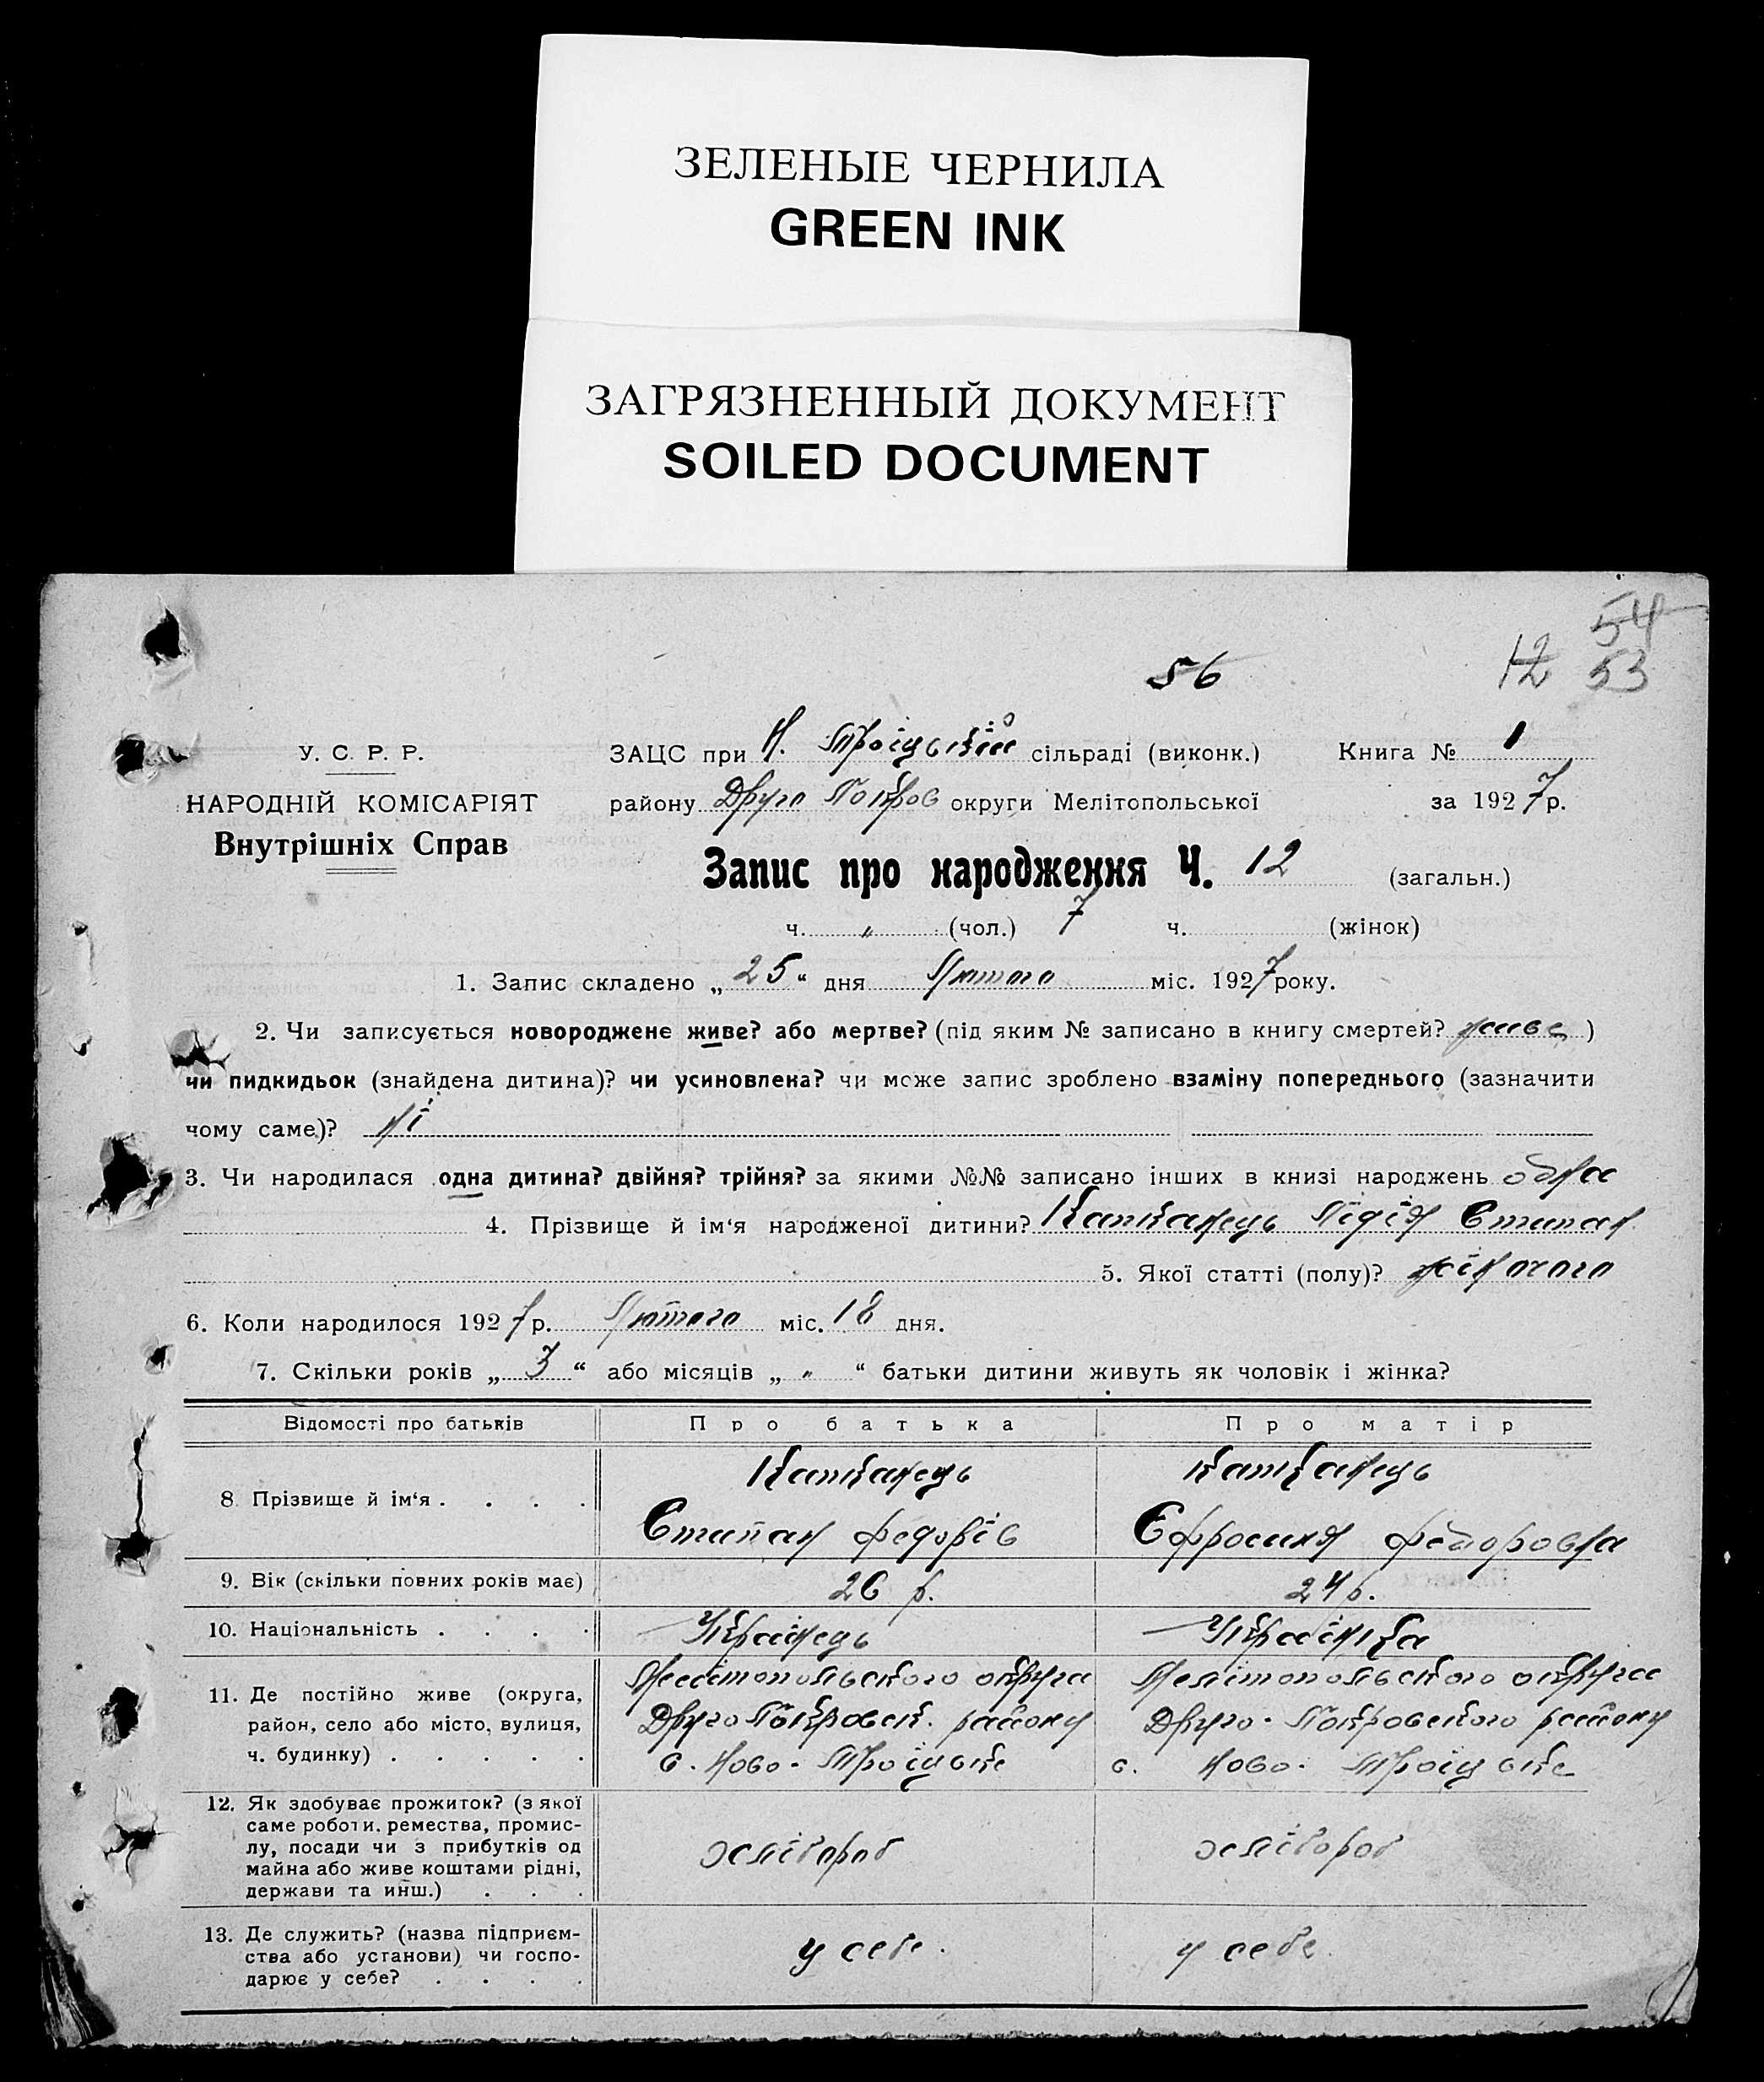 ЗЕЛЕНЫЕ ЧЕРНИЛА
GREEN INK
ЗАГРЯЗНЕННЫЙ ДОКУМЕНТ
SOILED DOCUMENT
54
56 12 53
У. С. Р. Р.
НАРОДНІЙ КОМІСАРІЯТ
Внутрішніх Справ
ЗАЦС при Н. Троіцькій сільраді (виконк.) Книга № 1
району Друго Покров округи Мелітопольської за 1927 р.
Запис про народження Ч. 12 (загальн.)
ч. „ (чол.) 7 ч. (жінок)
1. Запис складено „ 25 “ дня Лютого міс. 1927 року.
2. Чи записується новороджене живе? або мертве? (під яким № записано в книгу смертей? живе )
чи пидкидьок (знайдена дитина)? чи усиновлена? чи може запис зроблено взаміну попереднього (зазначити
чому саме)? ні
3. Чи народилася одна дитина? двійня? трійня? за якими №№ записано інших в книзі народжень одна
4. Прізвище й ім‘я народженої дитини? Капканець Лідія Степан.
5. Якої статті (полу)? жіночого
6. Коли народилося 1927 р. Лютого міс. 18 дня.
7. Скільки років „ 3 “ або місяців „ „ “ батьки дитини живуть як чоловік і жінка?
Відомості про батьків Про батька Про матір
8 Прізвище й ім‘я . . . .
Капканець
Степан Федорів
Капканець
Єфросиня Федоровна
9. Вік (скільки повних років має) 26 р. 24 р.
10. Національність . . . . Українець Українка
11. Де постійно живе (округа,
район, село або місто, вулиця,
ч. будинку) . . . . .
Мелітопольського округа
Друго Покровськ. району
с. Ново-Троіцьке
Мелітопольського округа
Друго-Покровського району
с. Ново-Троіцьке
12. Як здобуває прожиток? (з якої
саме роботи, ремества, промис-
лу, посади чи з прибутків од
майна або живе коштами рідні,
держави та инш.) . . .
хлібороб
хлібороб
13. Де служить? (назва підприєм-
ства або установи) чи госпо-
дарює у себе? . . . .
у себе.
у себе.